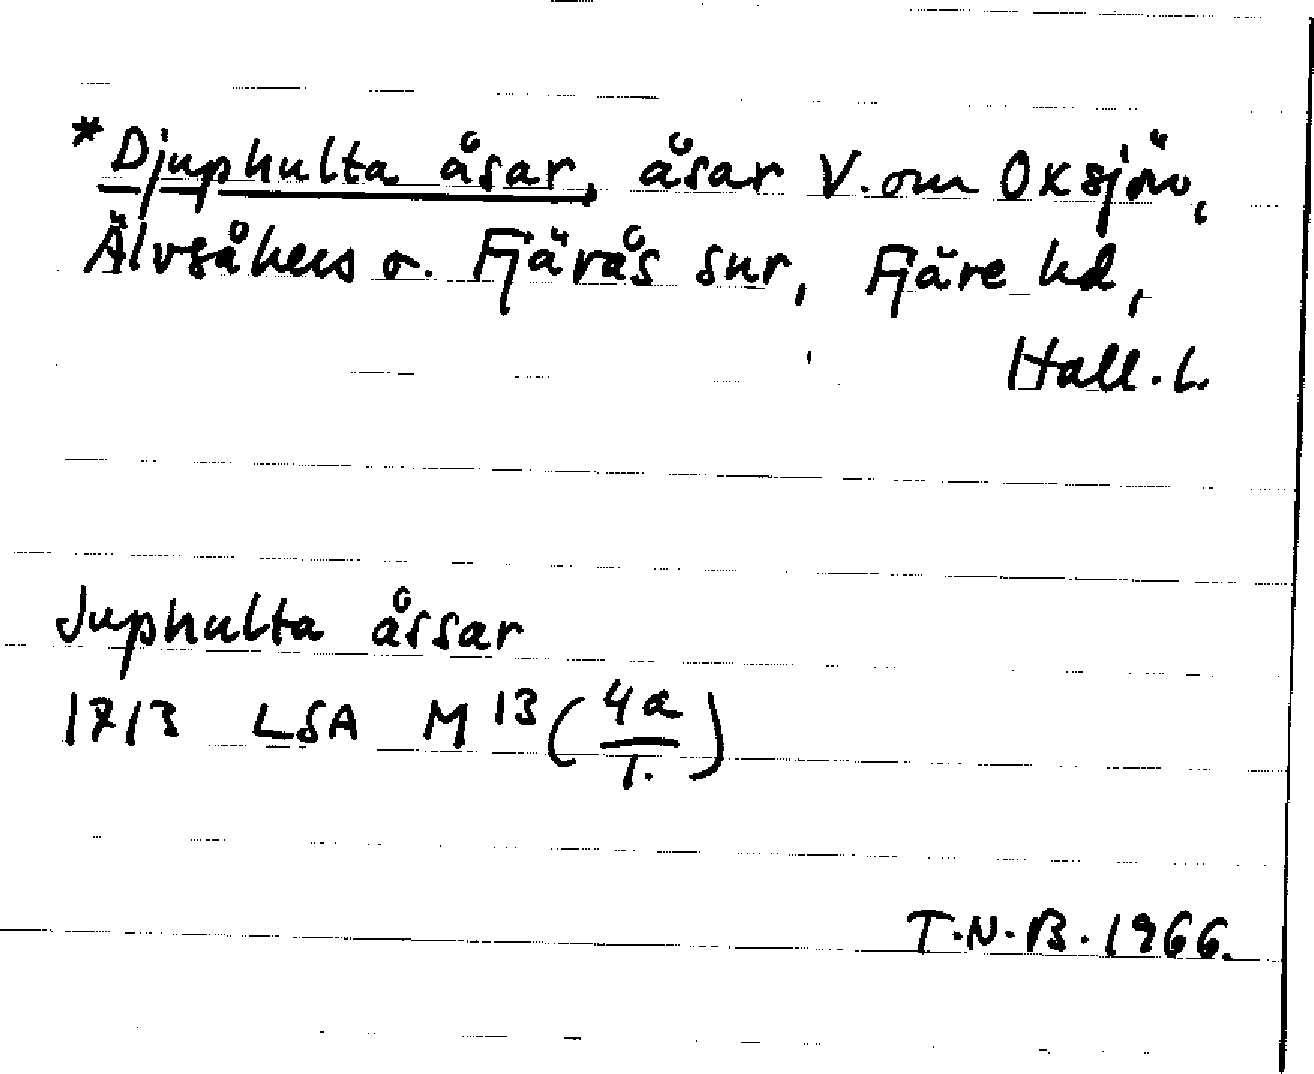 *Djuphulta åsar, åsar V. om Oxsjön,
Älvsåkers o. Fjärås snr, Fjäre hd,
Hall. l.
Juphulta åssar
1713 LSA M 13 (4a/1.)
T.N.B. 1966.